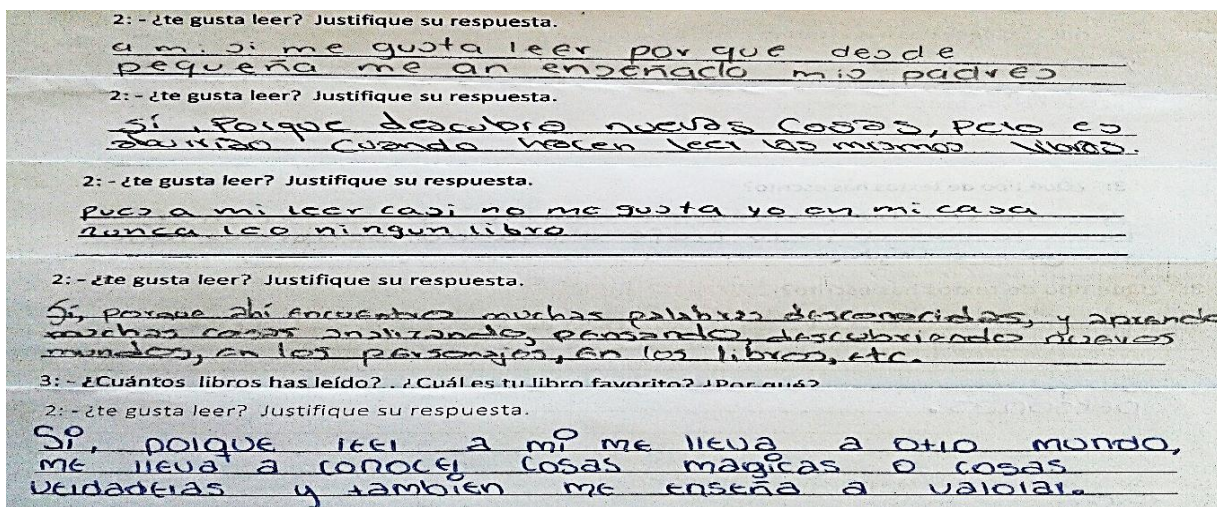 2: - ¿te gusta leer? Justifique su respuesta.
a mi si me gusta leer por que desde
pequeña me an enseñado mis padres
2: - ¿te gusta leer? Justifique su respuesta.
Sí, Porque descubro nuevas Cosas, Pero es
aburrido Cuando hacen leer los mismos libros.
2: - ¿te gusta leer? Justifique su respuesta.
pues a mi leer casi no me gusta yo en mi casa
nunca leo ningun libro
2: - ¿te gusta leer? Justifique su respuesta.
Si, porque ahí encuentro muchas palabras desconocidas, y aprendo
muchas cosas analizando, pensando, descubriendo nuevos
mundos, en los personajes, en los libros, etc.
3: - ¿Cuántos libros has leído?. ¿Cuál es tu libro favorito? ¿Por qué?
2: - ¿te gusta leer? Justifique su respuesta.
Si, porque leer a mi me lleva a otro mundo,
me lleva a conocer cosas magicas o cosas
verdaderas y tambien me enseña a valorar.